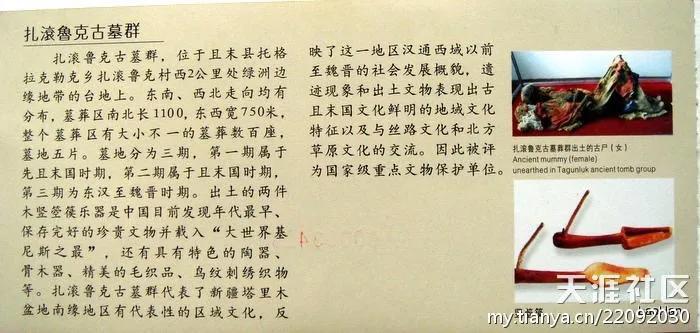 扎滚鲁克古墓群
扎滚鲁克古墓群，位于且末县托格
拉克勒克乡扎滚鲁克村西2公里处绿洲边
缘地带的台地上。东南、西北走向均有
分布，墓葬区南北长1100，东西宽750米，
整个墓葬区有大小不一的墓葬数百座，
墓地五片。墓地分为三期，第一期属于
先且末国时期，第二期属于且末国时期，
第三期为东汉至魏晋时期。出土的两件
木竖箜篌乐器是中国目前发现年代最早、
保存完好的珍贵文物并载入“大世界基
尼斯之最”，还有具有特色的陶器、
骨木器、精美的毛织品、鸟纹刺绣织物
等。扎滚鲁克古墓群代表了新疆塔里木
盆地南缘地区有代表性的区域文化，反
映了这一地区汉通西域以前
至魏晋的社会发展概貌，遗
迹现象和出土文物表现出古
且末国文化鲜明的地域文化
特征以及与丝路文化和北方
草原文化的交流。因此被评
为国家级重点文物保护单位。
扎滚鲁克古墓葬群出土的古尸（女）
Ancient mummy (female)
unearthed in Tagunluk ancient tomb group
天涯社区
my.tianya.cn/22092030